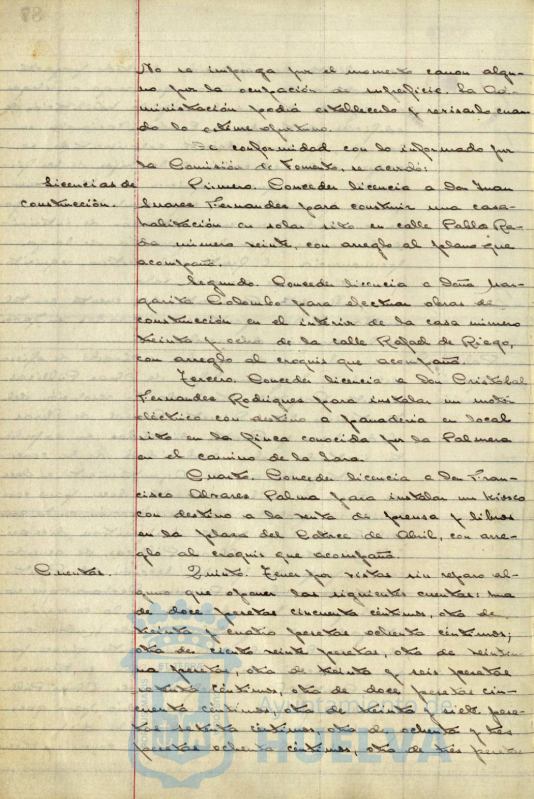 87
No se imponga por el momento canon algu-
no por la ocupación de superficie. La Ad-
ministración podrá establecerlo y revisarlo cuan-
do lo estime oportuno.
De conformidad con lo informado por
la Comisión de Fomento, se acordó:
Licencias de
construcción.
Primero. Conceder licencia a Don Juan
Suares Fernandes para construir una casa-
habitación en solar sito en calle Pablo Ra-
da número veinte, con arreglo al plano que
acompaña.
Segundo. Conceder licencia a Doña Mar-
garita Colombo para efectuar obras de
construcción en el interior de la casa número
treinta y ocho de la calle Rafael de Riego,
con arreglo al croquis que acompaña.
Tercero. Conceder licencia a Don Cristóbal
Fernandes Rodrigues para instalar un motor
eléctrico con destino a panadería en local
sito en la finca conocida por la Palmera
en el camino de la
Cuarto. Conceder licencia a Don Fran-
cisco Alvares Palma para instalar un kiosco
con destino a la venta de prensa y libros
en la plaza del Catorce de Abril, con arre-
glo al croquis que acompaña.
Cuentas.
Quinto. Tener por vistas sin reparo al-
guno que oponer las siguientes cuentas: una
de doce pesetas cincuenta céntimos, otra de
treinta y cuatro pesetas ochenta céntimos;
otra de ciento veinte pesetas, otra de veintiu-
na pesetas, otra de treinta y seis pesetas
setenta céntimos, otra de doce pesetas cin-
cuenta céntimos, otra de treinta y siete pese-
tas setenta céntimos, otra de ochenta y tres
pesetas ochenta céntimos, otra de tres pesetas
Ayuntamiento de
HUELVA